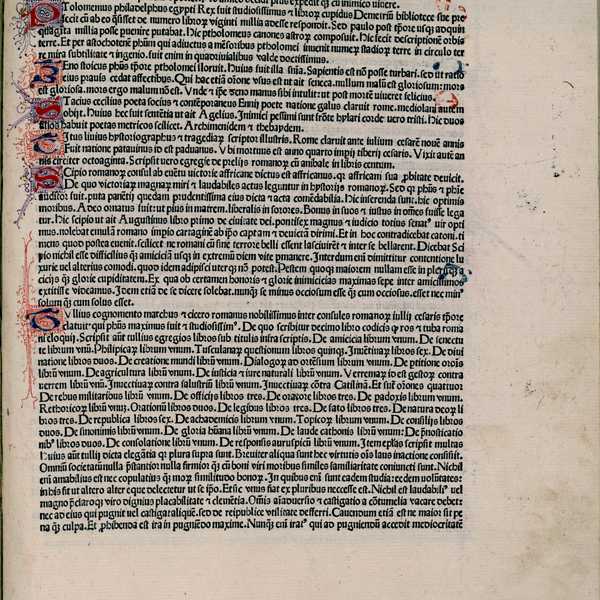 Ptolomeus philadelphus egypti Rex fuit studiosissimꝰ & librorꝝ cupidus Demetriũ bibliotece sue pre
fecit cũ ab eo q̃sisset de numero librorꝝ viginti millia adesse respondit. Sed paulo post tp̃ore vsqꝫ ad quin
quagita milia posse puenire putabat. Hic ptholomeus canones astrorꝝ composuit. Hic fecit descriptionẽ orbis
terre. Et per
mira subtilitate & ingenio. fuit enim in quadriuialibus valde doctissimus.
eno stoicus phũs tpe ptholomei floruit. Huius fuit illa sñia. Sapientis est nõ posse turbari. sed vt ratio
eius prauis cedat affectibus. Qui hac etiã oĩone vsus est vt ait seneca. nullum malũ est gloriosum: mors
est gloriosa. mors ergo malum nõ est. Vnde & ip̃e zeno manus sibi intulit: vt post mortẽ viueret felicius.
Stacius cecilius poeta socius & contẽporaneus Ennij poete natione galus claruit rome. mediolani autem
obijt. Huius hec fuit sentẽtia vt ait Agelius. Inimici pessimi sunt frõte hylari corde vero tristi. Hic duos
habuit poetas metricos scilicet. Archimenidem & thebaydem.
Titus liuius hystoriographꝰ & tragediarꝝ scriptor illustris. Rome claruit ante iulium cesarẽ nouẽ annis
Fuit natione patauinus id est paduanus. Vbi mortuus est anno quarto impij tiberij cesaris. Vixit autẽ an
nis circiter octoaginta. Scripsit vero egregie de prelijs romanorꝝ cũ anibale in libris centum.
Scipio romanorꝝ consul ab euẽtu victorie affricane dictus est affricanus. qꝛ affricam sua ꝓbitate deuicit.
De quo victoriaꝝ magnaꝝ miri & laudabiles actus leguntur in hystorijs romanorꝝ. Sed qꝛ phũs & phie
auditor fuit. puta panetij quedam prudentissima eius dicta & acta comẽdabilia. Hic inserenda sunt. hic optimis
moribus. A deo ornatus fuit: vt pius in matrem. liberalis in sorores. Bonus in suos & iustus in om̃es fuisse lega
tur. Hic scipio vt ait Augustinus libro primo de ciuitate dei. pontifex magnus & iudicio totius senatꝰ vir opti
mus. nolebat emulã romano impio cartaginẽ ab ip̃o captam & deuictã dirimi. Et in hoc contradicebat catoni. ti
mens quod postea euenit. scilicet ne romani cũ sine terrore belli essent lasciuirẽt & inter se bellarent. Dicebat Sci
pio nichil esse difficilius qꝫ amiciciã vsqꝫ in extremũ diem vite pmanere. Interdum em̃ dimittitur contentione lu
xurie vel alterius comodi. quod idem adipisci uterqꝫ nõ potest. Pestem quoqꝫ maiorem nullam esse in
qꝫ glorie cupiditatem. Ex qua ob certamen honoris & glorie inimicicias maximas sepe inter amicissimos
extitisse videamus. Idem etiã de se dicere solebat. nunqꝫ se minus occiosum esse qꝫ cum occiosus. esset nec minꝰ
solum qꝫ cum solus esset.
Tullius cognomento marchus & cicero romanus nobilissimus inter consules romanorꝝ iulij cesaris tp̃ore
claruit. qui phũs maximus fuit & studiosissimꝰ. De quo scribitur decimo libro codicis qꝫ ros & tuba roma
ni eloquij. Scripsit aũt tullius egregios libros sub titulis infra scriptis. De amicicia librum vnum. De senectu
te librum vnũ. Philipicaꝝ librum vnum. Tusculanaꝝ questionum libros quinqꝫ. Inuẽtinaꝝ libros sex. De diui
natione libros duos. De creatione mundi librũ vnum. Dialogoꝝ ad ortẽsium librũ vnum. De petitione oroĩs
librũ vnum. De agricultura librũ vnum. De iusticia & iure naturali librũ vnum. Verremaꝝ id est gestorꝝ contra
verrem librũ vnũ. Inuectiuarꝝ contra salustriũ librũ vnum. Inuectiuarꝝ cõtra Catilinã. Et sũt oĩones quattuor
De rebus militaribus librũ vnum. De officijs libros tres. De oratore libros tres. De padoxis librum vnum.
Rethoricoꝝ librũ vnuꝫ. Orationũ libros duos. De legibus libros tres. De fato libros tres. De natura deoꝝ li
bros tres. De republica libros sex. De academicis librum vnum. Topicorꝝ librum vnum. De consilijs libros
duos. De sinonimis librũ vnum. De gloria hũana librũ vnum. De laude cathonis librũ vnum: De ꝓnosticatio
nibꝰ libros duos. De consolatione librũ vnum. De responsis auruspicũ librũ vnum. Item epl̃as scripsit multas
Huius aũt tullij dicta elegãtia qꝫ plura supra sunt. Breuiter aliqua sunt hec virtutis oĩs laus inactione consisit.
Omniũ societatũ nulla p̃stantior nulla firmior qꝫ cũ boni viri moribus similes familiaritate coniuncti sunt. Nichil
em̃ amabilius est nec copulatius qꝫ morꝝ similitudo bonoꝝ. In quibus em̃ sunt eadem studia: eedem uolũtates:
in his fit ut altero alter eque delectetur ut se ip̃o. Et se vnus fiat ex pluribus neccesse est. Nichil est laudabilius vel
magno p̃claroqꝫ viro dignius placabilitate & clemẽtia. Om̃is aĩaduersio & castigatio a cõtumelia vacare debet:
nec ad eius qui pugnit vel castigat aliquẽ. sed de reipublice vtilitate desferri. Cauendum etiã est ne maior sit pe
na qꝫ culpa. Et ꝓhibenda est ira in pugnẽdo maxime. Nunqꝫ em̃ iratꝰ qui ad pugniendũ accedit mediocritatẽ